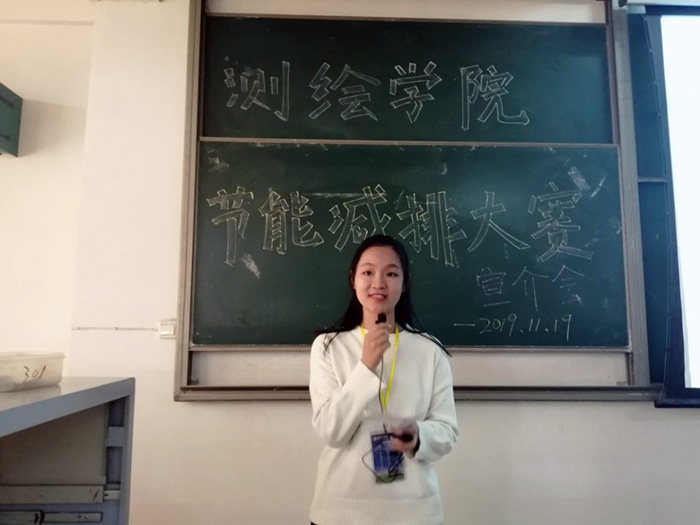 测绘学院
节能减排大赛
宣介会
—2019.11.19
301